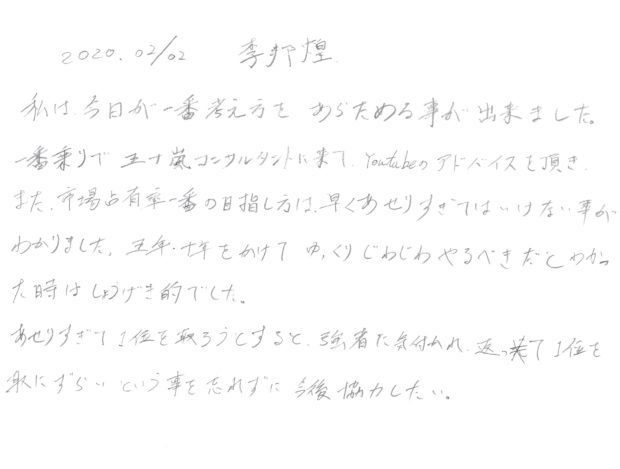 2020.02/02 李邦煌
私は、今日が一番考え方を あらためる事が出来ました。
一番乗りで 五十嵐コンサルタントに来て、Youtubeのアドバイスを頂き、
また、市場占有率一番の目指し方は、早くあせりすぎてはいけない事が
わかりました。五年・七年をかけて ゆっくりじわじわやるべきだとわかっ
た時はしょうげき的でした。
あせりすぎて1位を取ろうとすると、強者に気付かれ、返って1位を
取にずらいという事を忘れずに 今後協力したい。